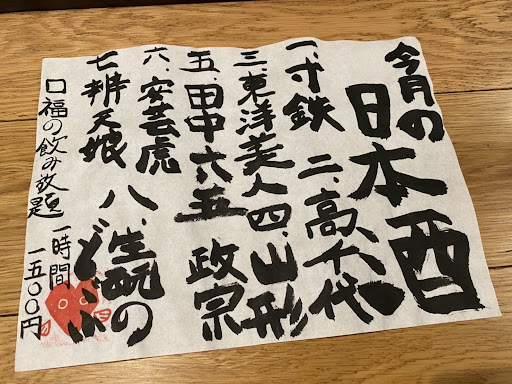 今月の
日本酒
一.寸鉄 二.高千代
三.東洋美人 四.山形
政宗
五.田中六五
六.安芸虎
七 辨天娘 八、生酛の
どぶ
口福の飲み放題 一時間
一五〇〇円